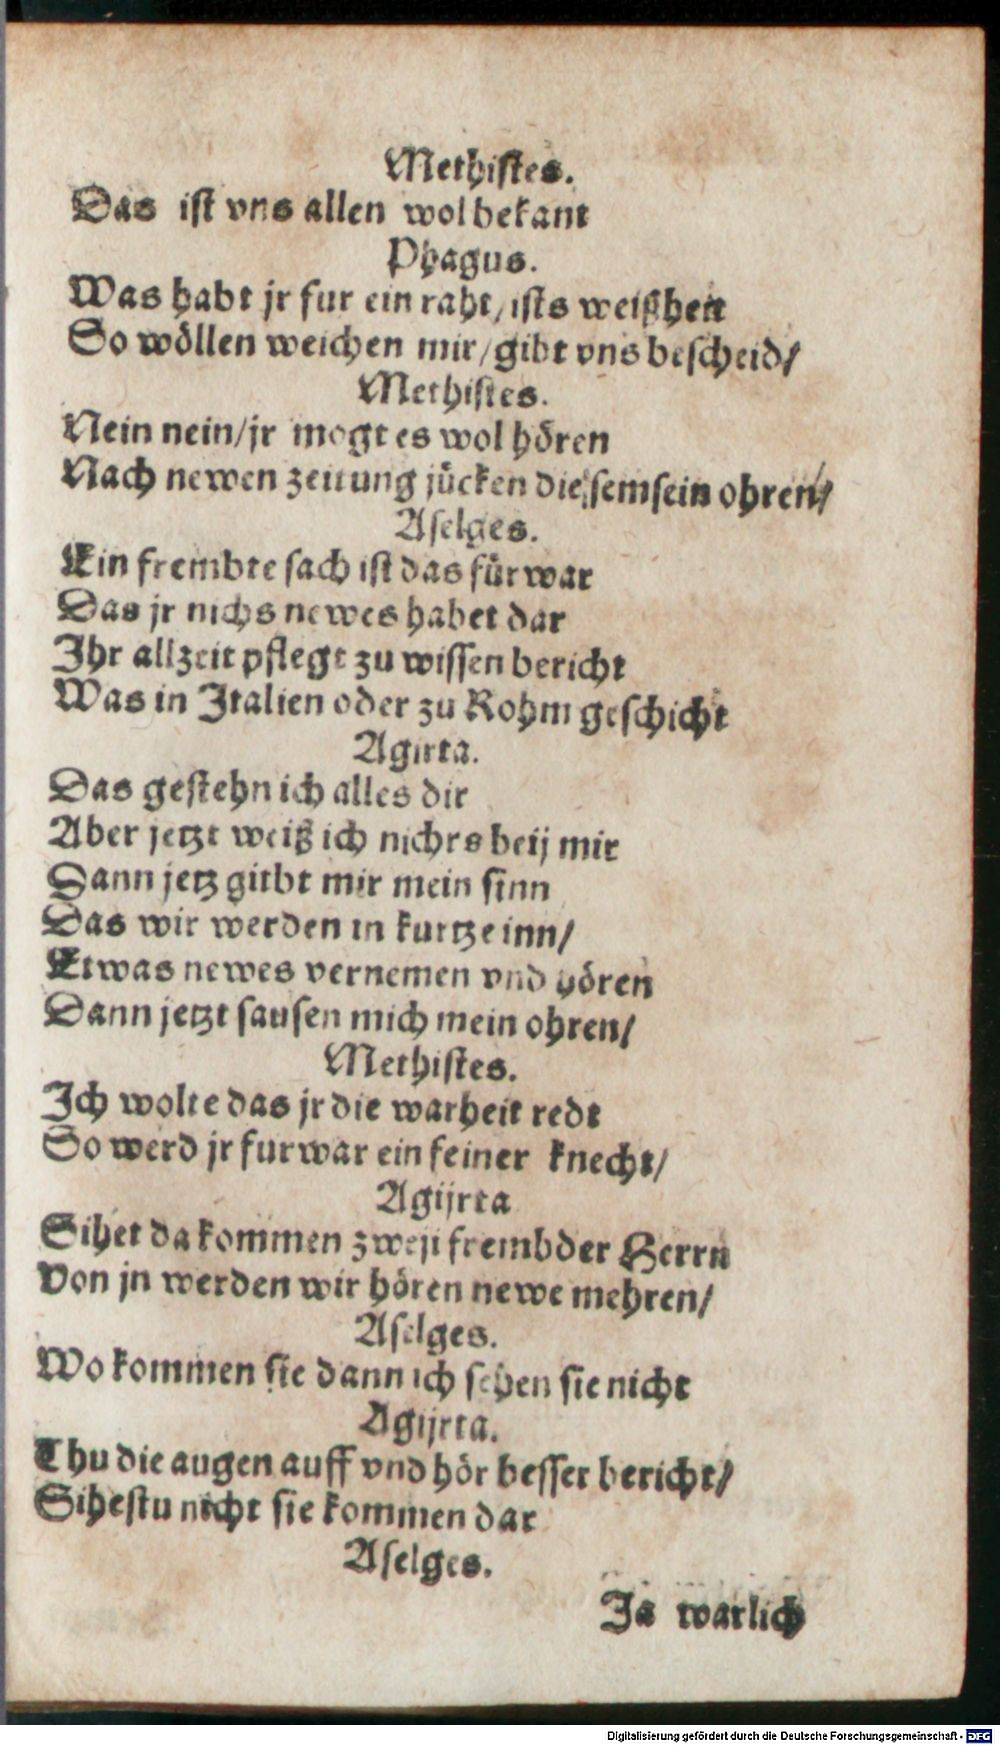 Methistes.
Das ist vns allen wol bekant
Phagus.
Was habt jr fur ein raht/ ists weißheit
So wöllen weichen mir/ gibt vns bescheid/
Methistes.
Nein nein/ jr mogt es wol hören
Nach newen zeitung jücken die semsein ohren/
Aselges.
Ein frembte sach ist das fürwar
Das jr nichs newes habet dar
Ihr allzeit pflegt zu wissen bericht
Was in Italien oder zu Rohm geschicht
Agirta.
Das gestehn ich alles dir
Aber jetzt weiß ich nichts beij mir
Dann jetz gitbt mir mein sinn
Das wir werden in kurtze inn/
Etwas newes vernemen vnd hören
Dann jetzt sausen mich mein ohren/
Methistes.
Ich wolte das jr die warheit redt
So werd jr furwar ein feiner knecht/
Agijrta
Sihet da kommen zweji frembder Herrn
Von jn werden wir hören newe mehren/
Aselges.
Wo kommen sie dann ich sehen sie nicht
Agijrta.
Thu die augen auff vnd hör besser bericht/
Sihestu nicht sie kommen dar
Aselges.
Ja warlich
Digitalisierung gefördert durch die Deutsche Forschungsgemeinschaft - DFG